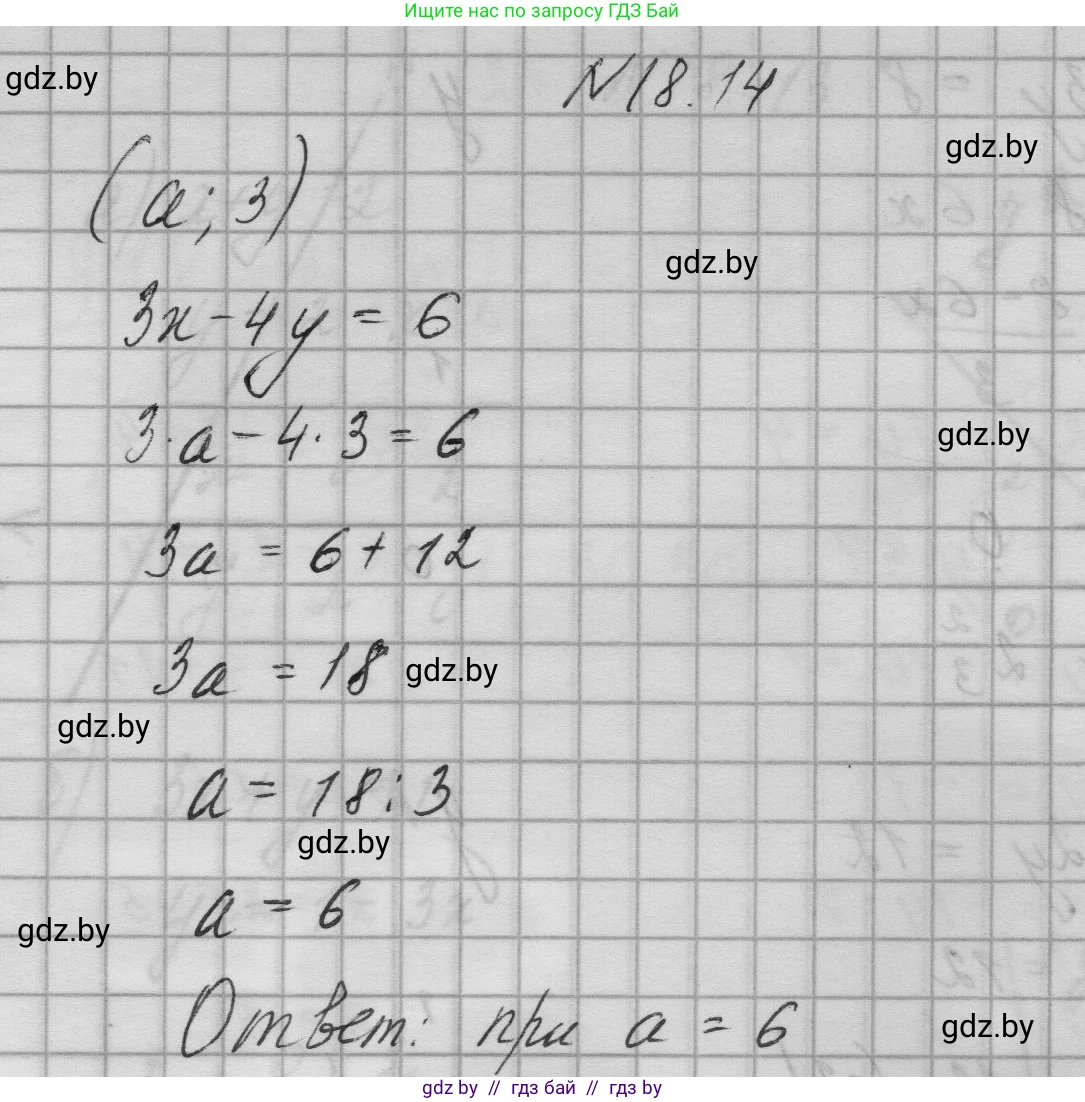 Ищите нас по запросу ГДЗ Бай
gdz.by
N18.14
gdz.by
(a; 3)
gdz.by
3x - 4y = 6
3·a - 4·3 = 6
gdz.by
3a = 6 + 12
3a = 18
gdz.by
gdz.by
a = 18 : 3
gdz.by
a = 6
gdz.by
Ответ: при a = 6
gdz.by
gdz by // гдз бай // гдз by